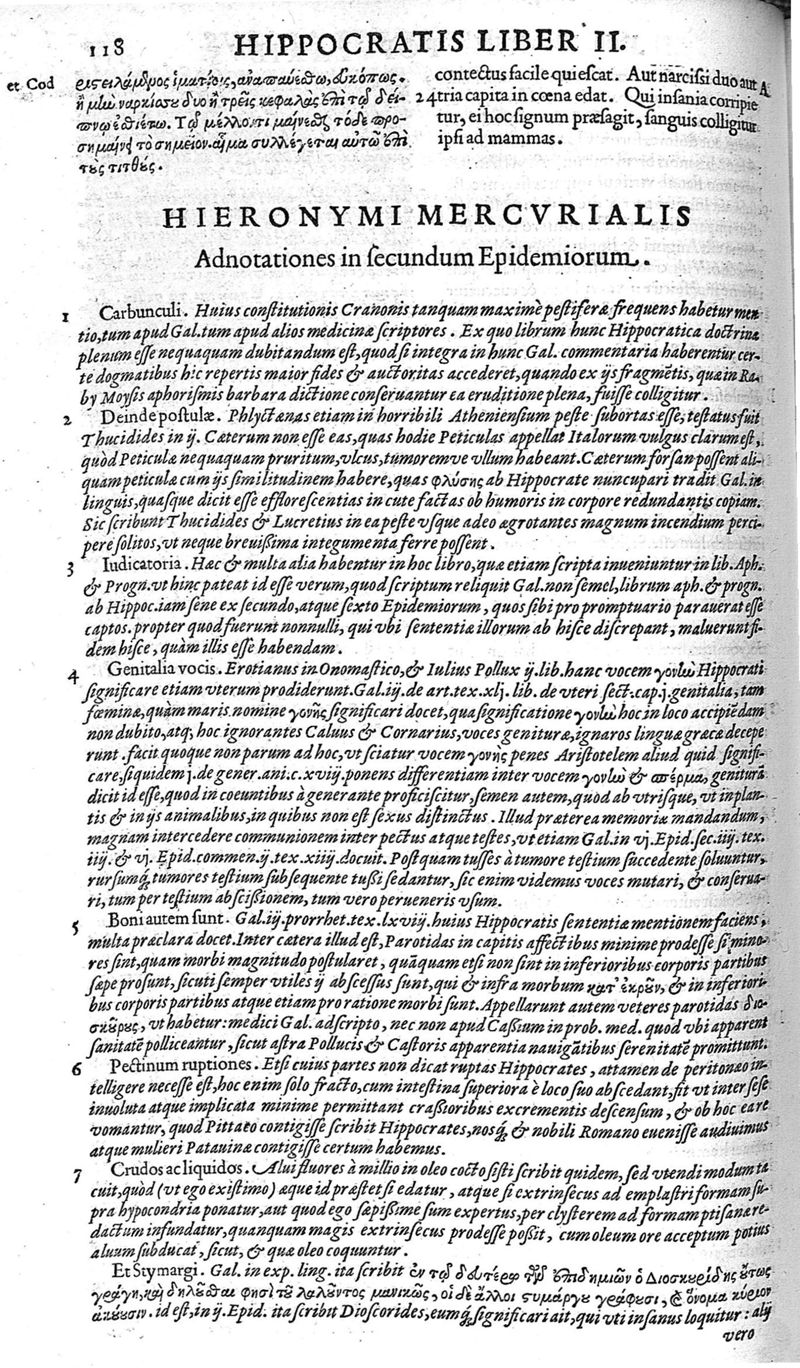 118 HIPPOCRATIS LIBER II.
et Cod
contectus facile quiescat. Aut narcissi duo aut
24 tria capita in cœna edat. Qui insania corripie
tur, ei hoc signum præsagit, sanguis colligitur
ipsi ad mammas.
HIERONYMI MERCVRIALIS
Adnotationes in secundum Epidemiorum.
1 Carbunculi. Huius constitutionis Cranonis tanquam maximè pestiferæ frequens habetur men
tio, tum apud Gal. tum apud alios medicinæ scriptores. Ex quo librum hunc Hippocratica doctrina
plenum esse nequaquam dubitandum est, quod si integra in hunc Gal. commentaria haberentur cer-
te dogmatibus hic repertis maior fides & auctoritas accederet, quando ex ijs fragmẽtis, quæ in Ra-
by Moysis aphorismis barbara dictione conseruantur ea eruditione plena, fuisse colligitur.
2 Deinde postulæ. Phlyctænas etiam in horribili Atheniensium peste subortas esse, testatus fuit
Thucidides in ij. Cæterum non esse eas, quas hodie Peticulas appellat Italorum vulgus clarum est,
quòd Peticulæ nequaquam pruritum, vlcus, tumoremve vllum habeant. Cæterum forsan possent ali-
quam peticulæ cum ijs similitudinem habere, quas φλύσης ab Hippocrate nuncupari tradit Gal. in
linguis, quasque dicit esse efflorescentias in cute factas ob humoris in corpore redundantis copiam.
Sic scribunt Thucidides & Lucretius in ea peste vsque adeo ægrotantes magnum incendium perci-
pere solitos, vt neque breuissima integumenta ferre possent.
3 Iudicatoria. Hæc & multa alia habentur in hoc libro, quæ etiam scripta inueniuntur in lib. Aph.
& Progn. vt hinc pateat id esse verum, quod scriptum reliquit Gal. non semel, librum aph. & progn.
ab Hippoc. iam sene ex secundo, atque sexto Epidemiorum, quos sibi pro promptuario parauerat esse
captos. propter quod fuerunt nonnulli, qui vbi sententia illorum ab hisce discrepant, maluerunt fi-
dem hisce, quàm illis esse habendam.
4 Genitalia vocis. Erotianus in Onomastico, & Iulius Pollux ij. lib. hanc vocem γονὼ Hippocrati
significare etiam vterum prodiderunt. Gal. iij. de art. tex. xlj. lib. de vteri sect. cap. j. genitalia, tam
fœminæ, quàm maris nomine γονῆς significari docet, qua significatione γονὼ hoc in loco accipiẽdam
non dubito, atq; hoc ignorantes Caluus & Cornarius, voces genituræ, ignaros linguæ græcæ decepe
runt. facit quoque non parum ad hoc, vt sciatur vocem γονῆς penes Aristotelem aliud quid signifi-
care, siquidem j. de gener. ani. c. xviij. ponens differentiam inter vocem γονὼ & σπέρμα, genituram
dicit id esse, quod in coeuntibus à generante proficiscitur, semen autem, quod ab vtrisque, vt in plan-
tis & in ijs animalibus, in quibus non est sexus distinctus. Illud præterea memoriæ mandandum,
magnam intercedere communionem inter pectus atque testes, vt etiam Gal. in vj. Epid. sec. iiij. tex.
iiij. & vj. Epid. commen. ij. tex. xiij. docuit. Postquam tusses à tumore testium succedente soluuntur,
rursumq́; tumores testium subsequente tussi sedantur, sic enim videmus voces mutari, & conserua-
ri, tum per testium abscissionem, tum vero per veneris vsum.
5 Boni autem sunt. Gal. iij. prorrhet. tex. lxviij. huius Hippocratis sententiæ mentionem faciens,
multa præclara docet. Inter cætera illud est, Parotidas in capitis affectibus minime prodesse si mino-
res sint, quam morbi magnitudo postularet, quãquam etsi non sint in inferioribus corporis partibus
sæpe prosunt, sicuti semper vtiles ij abscessus sunt, qui & infra morbum κατ' ἐκροῦν, & in inferiori-
bus corporis partibus atque etiam pro ratione morbi sunt. Appellarunt autem veteres parotidas διο-
σκούρους, vt habetur: medici Gal. adscripto, nec non apud Cassium in prob. med. quod vbi apparent
sanitatẽ polliceantur, sicut astra Pollucis & Castoris apparentia nauigãtibus serenitatẽ promittunt.
6 Pectinum ruptiones. Etsi cuius partes non dicat ruptas Hippocrates, attamen de peritonæo in-
telligere necesse est, hoc enim solo fracto, cum intestina superiora è loco suo abscedant, fit vt inter sese
inuoluta atque implicata minime permittant crassioribus excrementis descensum, & ob hoc eare
vomantur, quod Pittæo contigisse scribit Hippocrates, nosq́; & nobili Romano euenisse audiuimus
atque mulieri Patauinæ contigisse certum habemus.
7 Crudos ac liquidos. Alui fluores à millio in oleo cocto sisti scribit quidem, sed vtendi modum ta
cuit, quòd (vt ego existimo) æque id præstet si edatur, atque si extrinsecus ad emplastri formam su-
pra hypocondria ponatur, aut quod ego sæpissime sum expertus, per clysterem ad formam ptisanæ re-
dactum infundatur, quanquam magis extrinsecus prodesse possit, cum oleum ore acceptum potius
aluum subducat, sicut, & quæ oleo coquuntur.
Et Stymargi. Gal. in exp. ling. ita scribit ἐν τῷ δευτέρῳ τῶν ἐπιδημιῶν ὁ Διοσκουρίδης οὕτως
γράφη, καὶ δηλοῦσθαι φησὶ τοῦ λαλοῦντος μανικῶς, οἱ δὲ ἄλλοι στυμάργου γράφουσι, & ὄνομα κύριον
ἀκούουσιν. id est, in ij. Epid. ita scribit Dioscorides, eumq́; significari ait, qui vti insanus loquitur: alij
vero